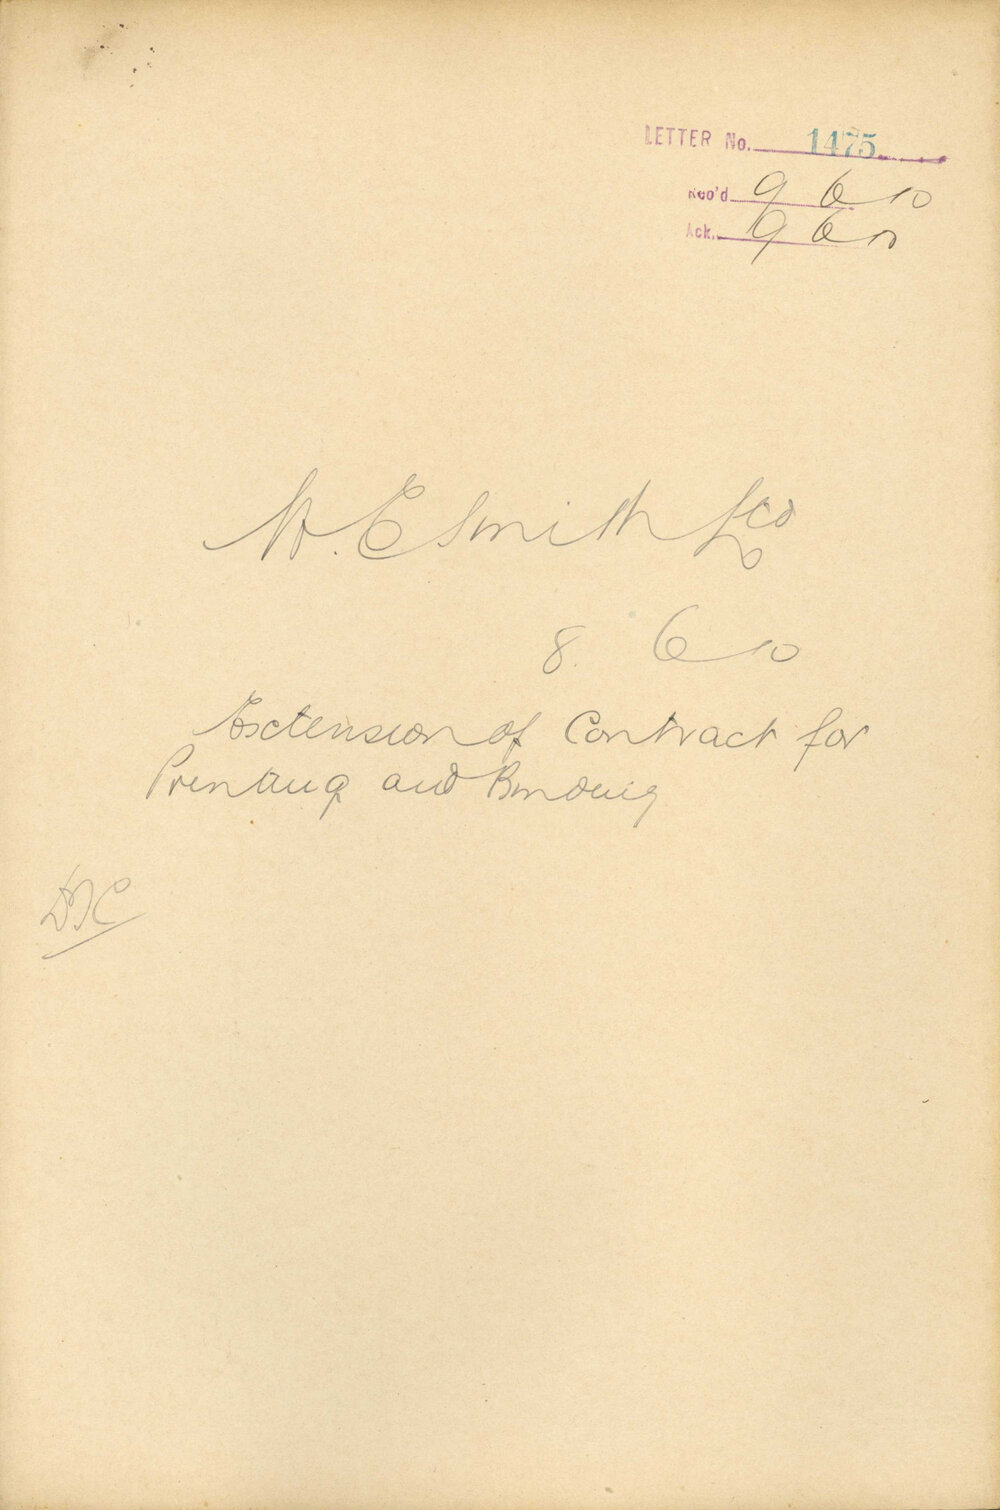 LETTER No. 1475
Rec'd 9 6 10
Ack. 9 6 10
W. E Smith Ltd
8. 6 10
Extension of Contract for
Printing and Binding